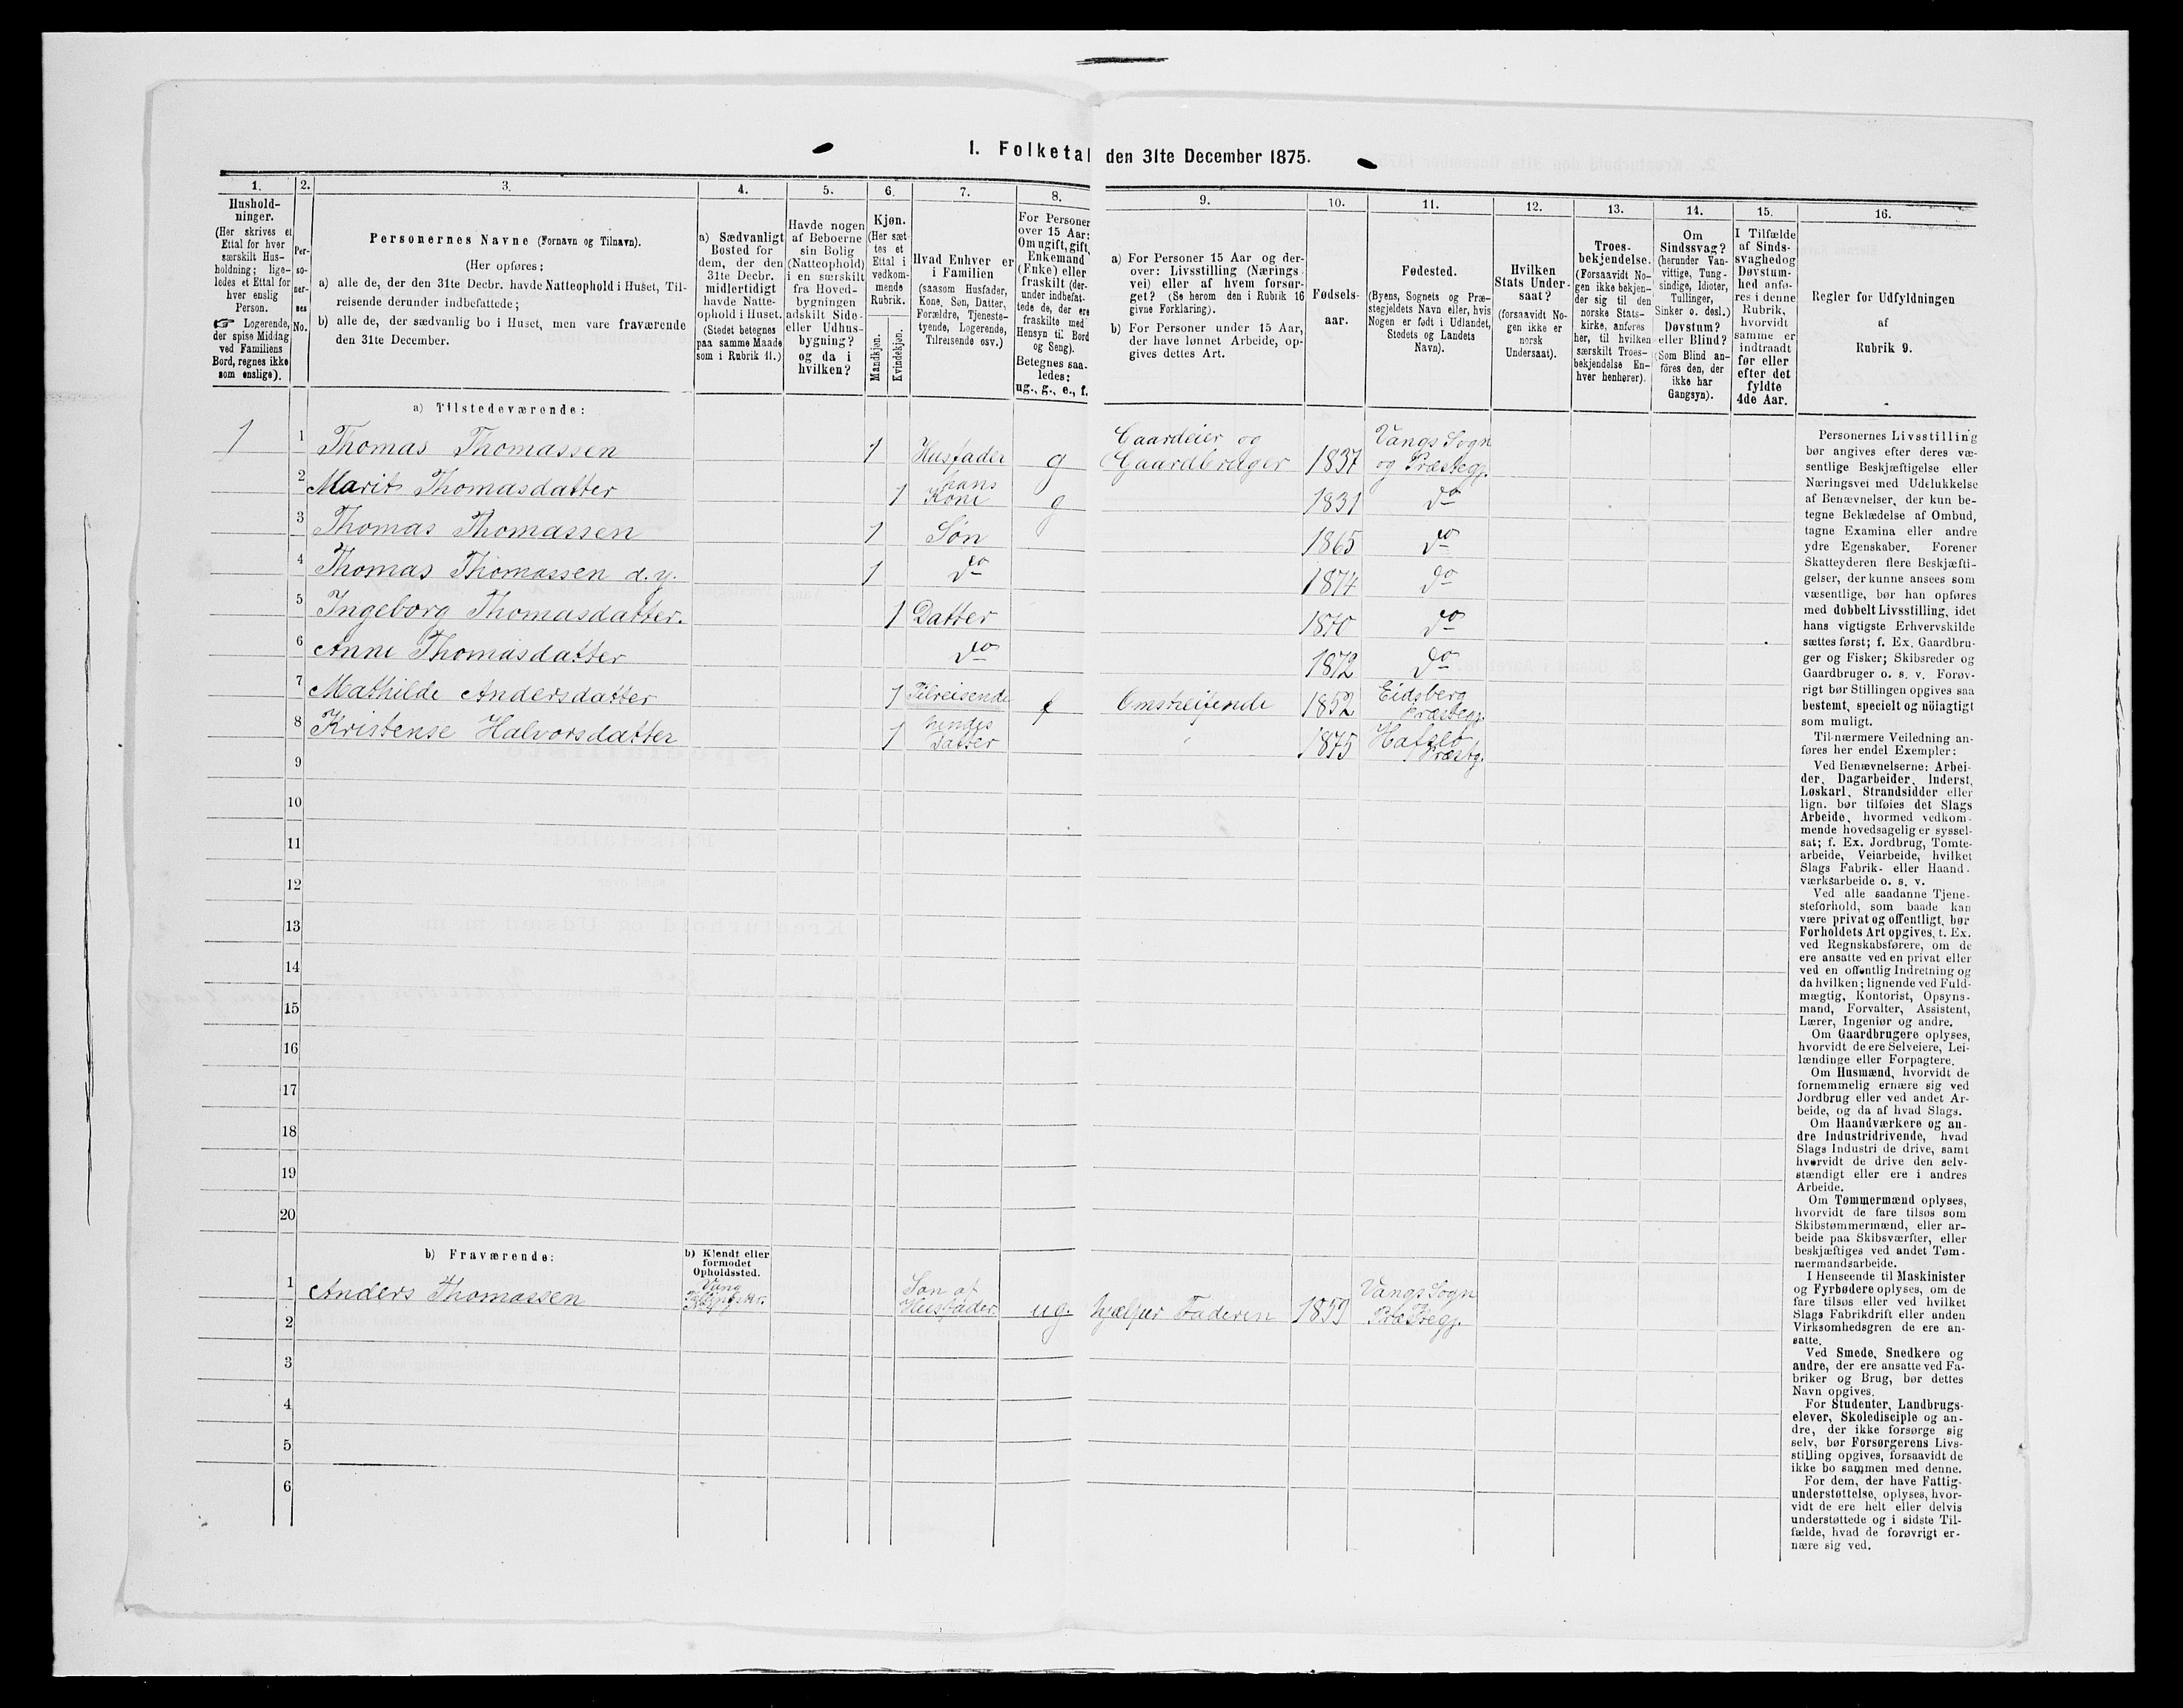 I. Folketal den 31te December 1875.
1. 2. 3. 4. 5. 6. 7. 8. 9. 10. 11. 12. 13. 14. 15. 16.
Hushold-
ninger.
(Her skrives et
Ettal for hver
særskilt Hus-
holdning; lige-
ledes et Ettal for
hver enslig
Person.
☞ Logerende,
der spise Middag
ved Familiens
Bord, regnes ikke
som enslige).
Per-
so-
ner-
nes
No.
Personernes Navne (Fornavn og Tilnavn).
(Her opføres:
a) alle de, der den 31te Decbr. havde Natteophold i Huset, Til-
reisende derunder indbefattede;
b) alle de, der sædvanlig bo i Huset, men vare fraværende
den 31te December.
a) Sædvanligt
Bosted for
dem, der den
31te Decbr.
midlertidigt
havde Natte-
ophold i Huset.
(Stedet betegnes
paa samme Maade
som i Rubrik 11.)
Havde nogen
af Beboerne
sin Bolig
(Natteophold)
i en særskilt
fra Hoved-
bygningen
adskilt Side-
eller Udhus-
bygning?
og da i
hvilken?
Kjøn.
(Her sæt-
tes et
Ettal i
vedkom-
mende
Rubrik.
Mandkjøn.
Kvindekjøn.
Hvad Enhver er
i Familien
(saasom Husfader,
Kone, Søn, Datter,
Forældre, Tjeneste-
tyende, Logerende,
Tilreisende osv.)
For Personer
over 15 Aar:
Om ugift, gift,
Enkemand
(Enke) eller
fraskilt (der-
under indbefat-
tede de, der ere
fraskilte med
Hensyn til Bord
og Seng).
Betegnes saa-
ledes:
ug., g., e., f.
a) For Personer 15 Aar og der-
over: Livsstilling (Nærings-
vei) eller af hvem forsør-
get? (Se herom den i Rubrik 16
givne Forklaring).
b) For Personer under 15 Aar,
der have lønnet Arbeide, op-
gives dettes Art.
Fødsels-
aar.
Fødested.
(Byens, Sognets og Præ-
stegjeldets Navn eller, hvis
Nogen er født i Udlandet,
Stedets og Landets
Navn).
Hvilken
Stats Under-
saat?
(forsaavidt No-
gen ikke er
norsk
Undersaat).
Troes-
bekjendelse.
(Forsaavidt No-
gen ikke bekjen-
der sig til den
norske Stats-
kirke, anføres
her, til hvilken
særskilt Troes-
bekjendelse En-
hver henhører).
Om
Sindssvag?
(herunder Van-
vittige, Tung-
sindige, Idioter,
Tullinger,
Sinker o. desl.)
Døvstum?
eller Blind?
(Som Blind an-
føres den, der
ikke har
Gangsyn).
I Tilfælde
af Sinds-
svaghed og
Døvstum-
hed anfø-
res i denne
Rubrik,
hvorvidt
samme er
indtraadt
før eller
efter det
fyldte
4de Aar.
Regler for Udfyldningen
af
Rubrik 9.
a) Tilstedeværende:
1 1 Thomas Thomassen 1 Husfader g Gaardeier og Gaardbruger 1837 Vangs Sogn og Præstegj.
2 Marit Thomasdatter 1 hans Kone g 1831 do
3 Thomas Thomassen 1 Søn 1865 do
4 Thomas Thomassen d. y. 1 do 1874 do
5 Ingeborg Thomasdatter. 1 Datter 1870 do
6 Anne Thomasdatter do 1872 do
7 Mathilde Andersdatter 1 Tilreisende f Omstreifende 1852 Eidsberg Præstegj.
8 Kristense Halvorsdatter 1 hendes Datter 1875 Præstg.
9
10
11
12
13
14
15
16
17
18
19
20
b) Fraværende:
b) Kjendt eller
formodet
Opholdssted.
1 Anders Thomassen Vang Søn af Husfader. ug. hjælper Faderen 1859 Vangs Sogn Præstegj.
2
3
4
5
6
Personernes Livsstilling
bør angives efter deres væ-
sentlige Beskjæftigelse eller
Næringsvei med Udelukkelse
af Benævnelser, der kun be-
tegne Beklædelse af Ombud,
tagne Examina eller andre
ydre Egenskaber. Forener
Skatteyderen flere Beskjæfti-
gelser, der kunne ansees som
væsentlige, bør han opføres
med dobbelt Livsstilling, idet
hans vigtigste Erhvervskilde
sættes først; f. Ex. Gaardbru-
ger og Fisker; Skibsreder og
Gaardbruger o. s. v. Forøv-
rigt bør Stillingen opgives saa
bestemt, specielt og nöiagtigt
som muligt.
Til nærmere Veiledning an-
føres her endel Exempler:
Ved Benævnelserne: Arbei-
der, Dagarbeider, Inderst,
Løskarl, Strandsidder eller
lign. bør tilføies det Slags
Arbeide, hvormed vedkom-
mende hovedsagelig er syssel-
sat; f. Ex. Jordbrug, Tomte-
arbeide, Veiarbeide, hvilket
Slags Fabrik- eller Haand-
værksarbeide o. s. v.
Ved alle saadanne Tjene-
steforhold, som baade kan
være privat og offentligt, bør
Forholdets Art opgives, f. Ex.
ved Regnskabsførere, om de
ere ansatte ved en privat eller
ved en offentlig Indretning og
da hvilken; lignende ved Fuld-
mægtig, Kontorist, Opsyns-
mand, Forvalter, Assistent,
Lærer, Ingeniør og andre.
Om Gaardbrugere oplyses,
hvorvidt de ere Selveiere, Lei-
lændinge eller Forpagtere.
Om Husmænd, hvorvidt de
fornemmelig ernære sig ved
Jordbrug eller ved andet Ar-
beide, og da af hvad Slags.
Om Haandværkere og an-
dre Industridrivende, hvad
Slags Industri de drive, samt
hvorvidt de drive den selv-
stændigt eller ere i andres
Arbeide.
Om Tømmermænd oplyses,
hvorvidt de fare tilsøs som
Skibstømmermænd, eller ar-
beide paa Skibsværfter, eller
beskjæftiges ved andet Tøm-
mermandsarbeide.
I Henseende til Maskinister
og Fyrbødere oplyses, om de
fare tilsøs eller ved hvilket
Slags Fabrikdrift eller anden
Virksomhedsgren de ere an-
satte.
Ved Smede, Snedkere og
andre, der ere ansatte ved Fa-
briker og Brug, bør dettes
Navn opgives.
For Studenter, Landbrugs-
elever, Skoledisciple og an-
dre, der ikke forsørge sig
selv, bør Forsørgerens Livs-
stilling opgives, forsaavidt de
ikke bo sammen med denne.
For dem, der have Fattig-
understøttelse, oplyses, hvor-
vidt de ere helt eller delvis
understøttede og i sidste Til-
fælde, hvad de forøvrigt er-
nære sig ved.